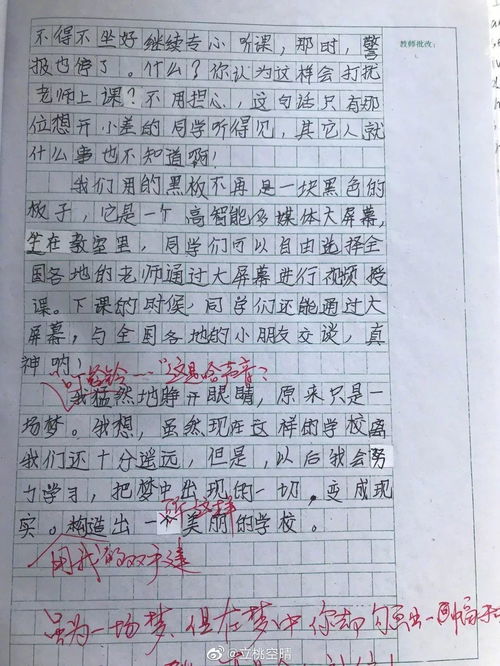 教师批改：
不得不坐好继续专心听课，那时，警
报也停了。什么？你认为这样会打扰
老师上课？不用担心，这句话只有那
位想开小差的同学听得见，其它人就
什么事也不知道啊！
我们用的黑板不再是一块黑色的
板子，它是一个高智能多媒体大屏幕，
坐在教室里，同学们可以自由选择全
国各地的老师通过大屏幕进行视频授
课。下课的时候，同学们还能通过大
屏幕，与全国各地的小朋友交谈，真
神哟！
"这是啥声音？
我猛然地睁开眼睛，原来只是一
场梦。我想，虽然现在这样的学校离
我们还十分遥远，但是，以后我会努
力学习，把梦中出现的一切，变成现
实。构造出一 美丽的学校。
用我的双手建
虽为一场梦，但在梦中你却勾画出一幅
@立桃空晴